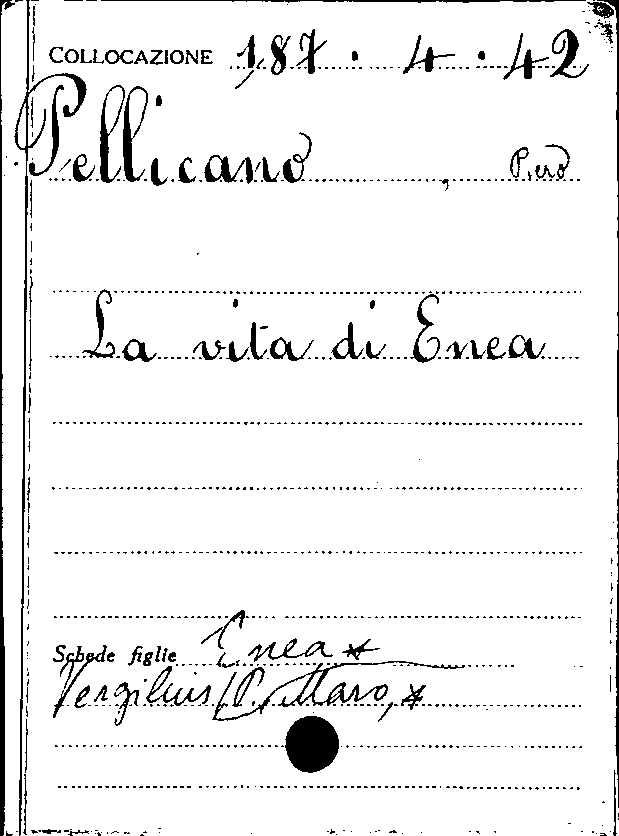 COLLOCAZIONE 187 . 4 . 42
Pellicano , Piero
La vita di Enea
Schede figlie Enea *
Vergilius (P.) Maro, *